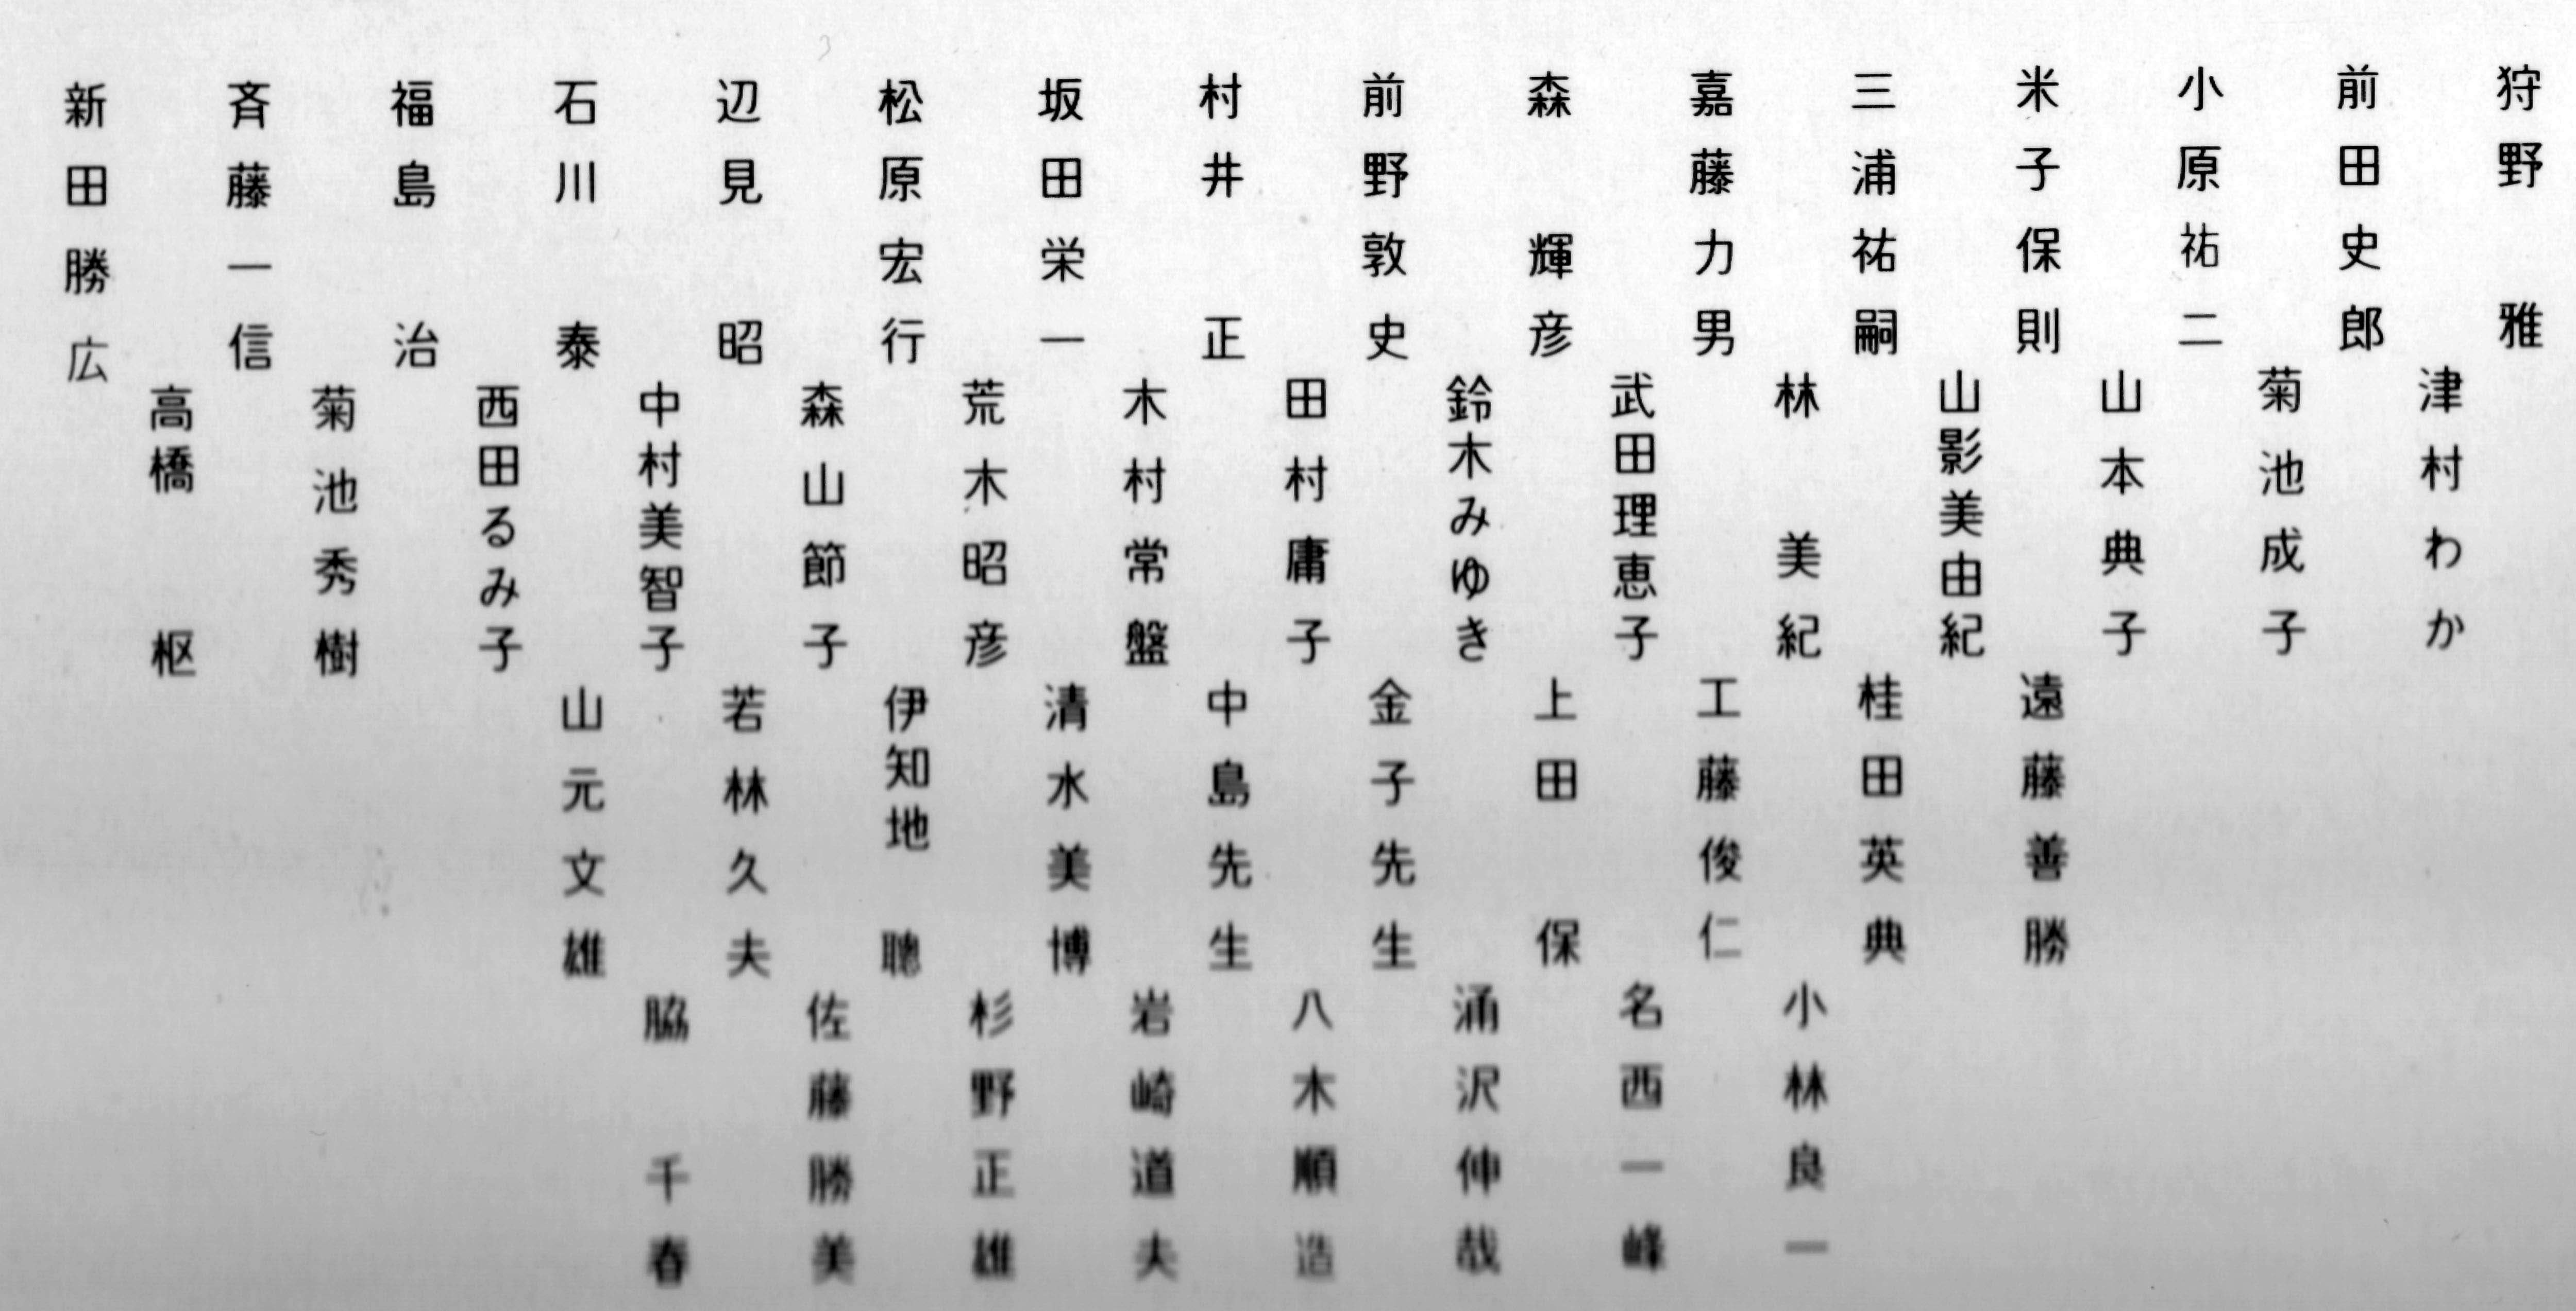 狩野 雅
前田史郎
小原祐二
米子保則
三浦祐嗣
嘉藤力男
森 輝彦
前野敦史
村井 正
坂田栄一
松原宏行
辺見 昭
石川 泰
福島 治
斉藤一信
新田勝広
津村わか
菊池成子
山本典子
山影美由紀
林 美紀
武田理恵子
鈴木みゆき
田村庸子
木村常盤
荒木昭彦
森山節子
中村美智子
西田るみ子
菊池秀樹
高橋 枢
遠藤善勝
桂田英典
工藤俊仁
上田 保
金子先生
中島先生
清水美博
伊知地 聰
若林久夫
山元文雄
小林良一
名西一峰
涌沢伸哉
八木順造
岩崎道夫
杉野正雄
佐藤勝美
脇 千春